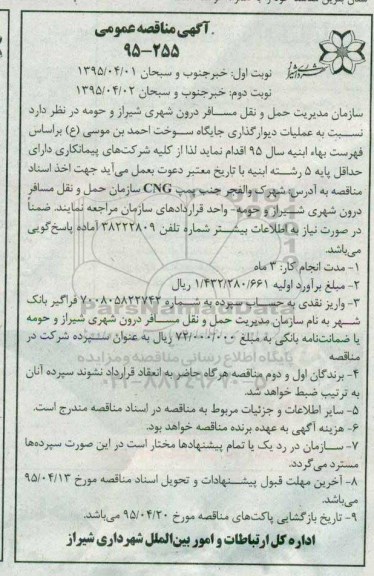 آگهی مناقصه عمومی
۹۵-۲۵۵
نوبت اول: خبرجنوب و سبحان ۱۳۹۵/۰۴/۰۱
نوبت دوم: خبرجنوب و سبحان ۱۳۹۵/۰۴/۰۲
سازمان مدیریت حمل و نقل مسافر درون شهری شیراز و حومه در نظر دارد
نسبت به عملیات دیوارگذاری جایگاه سوخت احمد بن موسی (ع) براساس
فهرست بهاء ابنیه سال ۹۵ اقدام نماید لذا از کلیه شرکت‌های پیمانکاری دارای
حداقل پایه ۵ رشته ابنیه با تاریخ معتبر دعوت بعمل می‌آید جهت اخذ اسناد
مناقصه به آدرس: شهرک والفجر جنب پمپ CNG سازمان حمل و نقل مسافر
درون شهری شیراز و حومه- واحد قراردادهای سازمان مراجعه نمایند. ضمناً
در صورت نیاز به اطلاعات بیشتر شماره تلفن ۳۸۲۲۲۸۰۹ آماده پاسخ‌گویی
می‌باشد.
۱- مدت انجام کار: ۳ ماه
۲- مبلغ برآورد اولیه ۱/۴۳۲/۲۸۰/۶۶۱ ریال
۳- واریز نقدی به حساب سپرده به شماره ۷۰۰۸۰۵۸۲۲۷۴۲ فراگیر بانک
شهر به نام سازمان مدیریت حمل و نقل مسافر درون شهری شیراز و حومه
یا ضمانت‌نامه بانکی به مبلغ ۷۲/۰۰۰/۰۰۰ ریال به عنوان سپرده شرکت در
مناقصه
۴- برندگان اول و دوم مناقصه هرگاه حاضر به انعقاد قرارداد نشوند سپرده آنان
به ترتیب ضبط خواهد شد.
۵- سایر اطلاعات و جزئیات مربوط به مناقصه در اسناد مناقصه مندرج است.
۶- هزینه آگهی به عهده برنده مناقصه خواهد بود.
۷- سازمان در رد یک یا تمام پیشنهادها مختار است در این صورت سپرده‌ها
مسترد می‌گردد.
۸- آخرین مهلت قبول پیشنهادات و تحویل اسناد مناقصه مورخ ۹۵/۰۴/۱۳
می‌باشد.
۹- تاریخ بازگشایی پاکت‌های مناقصه مورخ ۹۵/۰۴/۲۰ می‌باشد.
اداره کل ارتباطات و امور بین‌الملل شهرداری شیراز